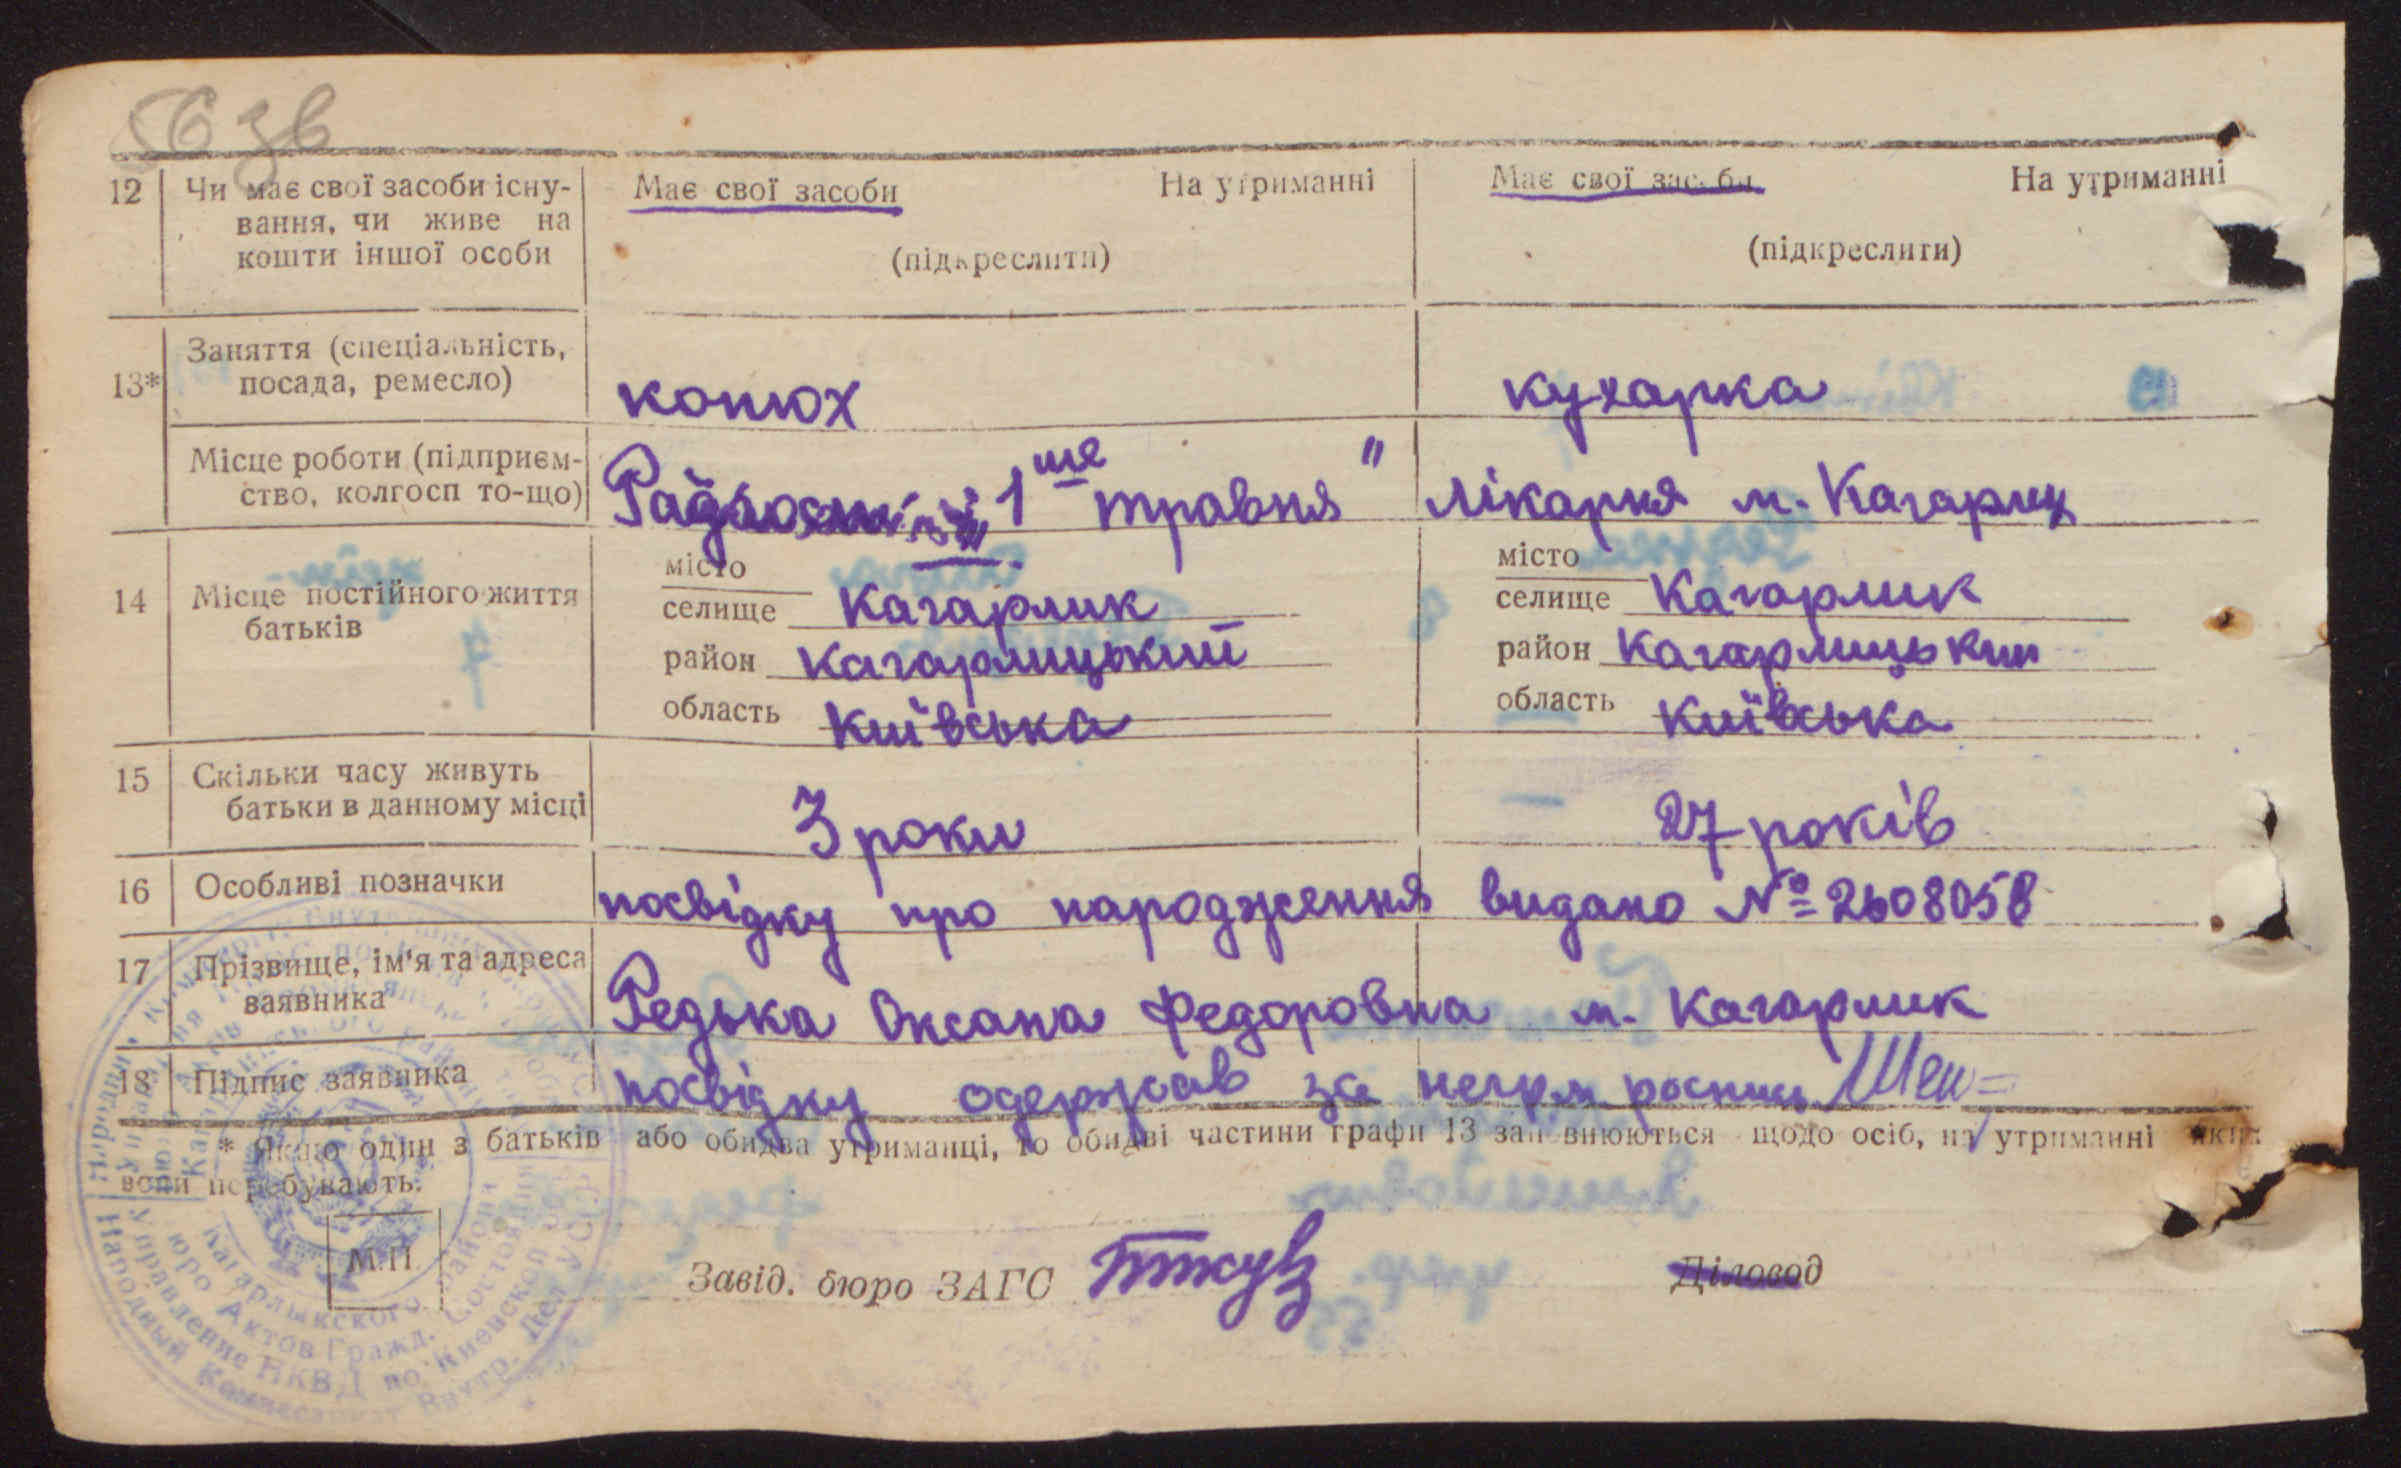 12 Чи має свої засоби існу- Має свої засоби На утриманні Має свої засоби На утриманні
вання, чи живе на
кошти іншої особи (підкреслити) (підкреслити)
13* Заняття (спеціальність,
посада, ремесло) конюх кухарка
Місце роботи (підприєм-
ство, колгосп то-що) 1ше травня" лікарня м. Кагарлик
14 Місце постійного життя
батьків
місто місто
селище Кагарлик селище Кагарлик
район Кагарлицький район Кагарлицький
область Київська область Київська
15 Скільки часу живуть
батьки в данному місці 3 роки 27 років
16 Особливі позначки посвідку про народження видано № 2608058
17 Прізвище, ім'я та адреса
заявника Редька Оксана Федоровна м. Кагарлик
18 Підпис заявника посвідку одержав за
* Якщо один з батьків або обидва утриманці, то обидві частини графи 13 заповнюються щодо осіб, на утриманні яких
вони перебувають.
М.П.
Завід. бюро ЗАГС Діловод
Народный Комиссариат Внутр. Дел УССР
Управление НКВД по Киевской
Бюро Актов Гражд. Состояния
Кагарлыкского района